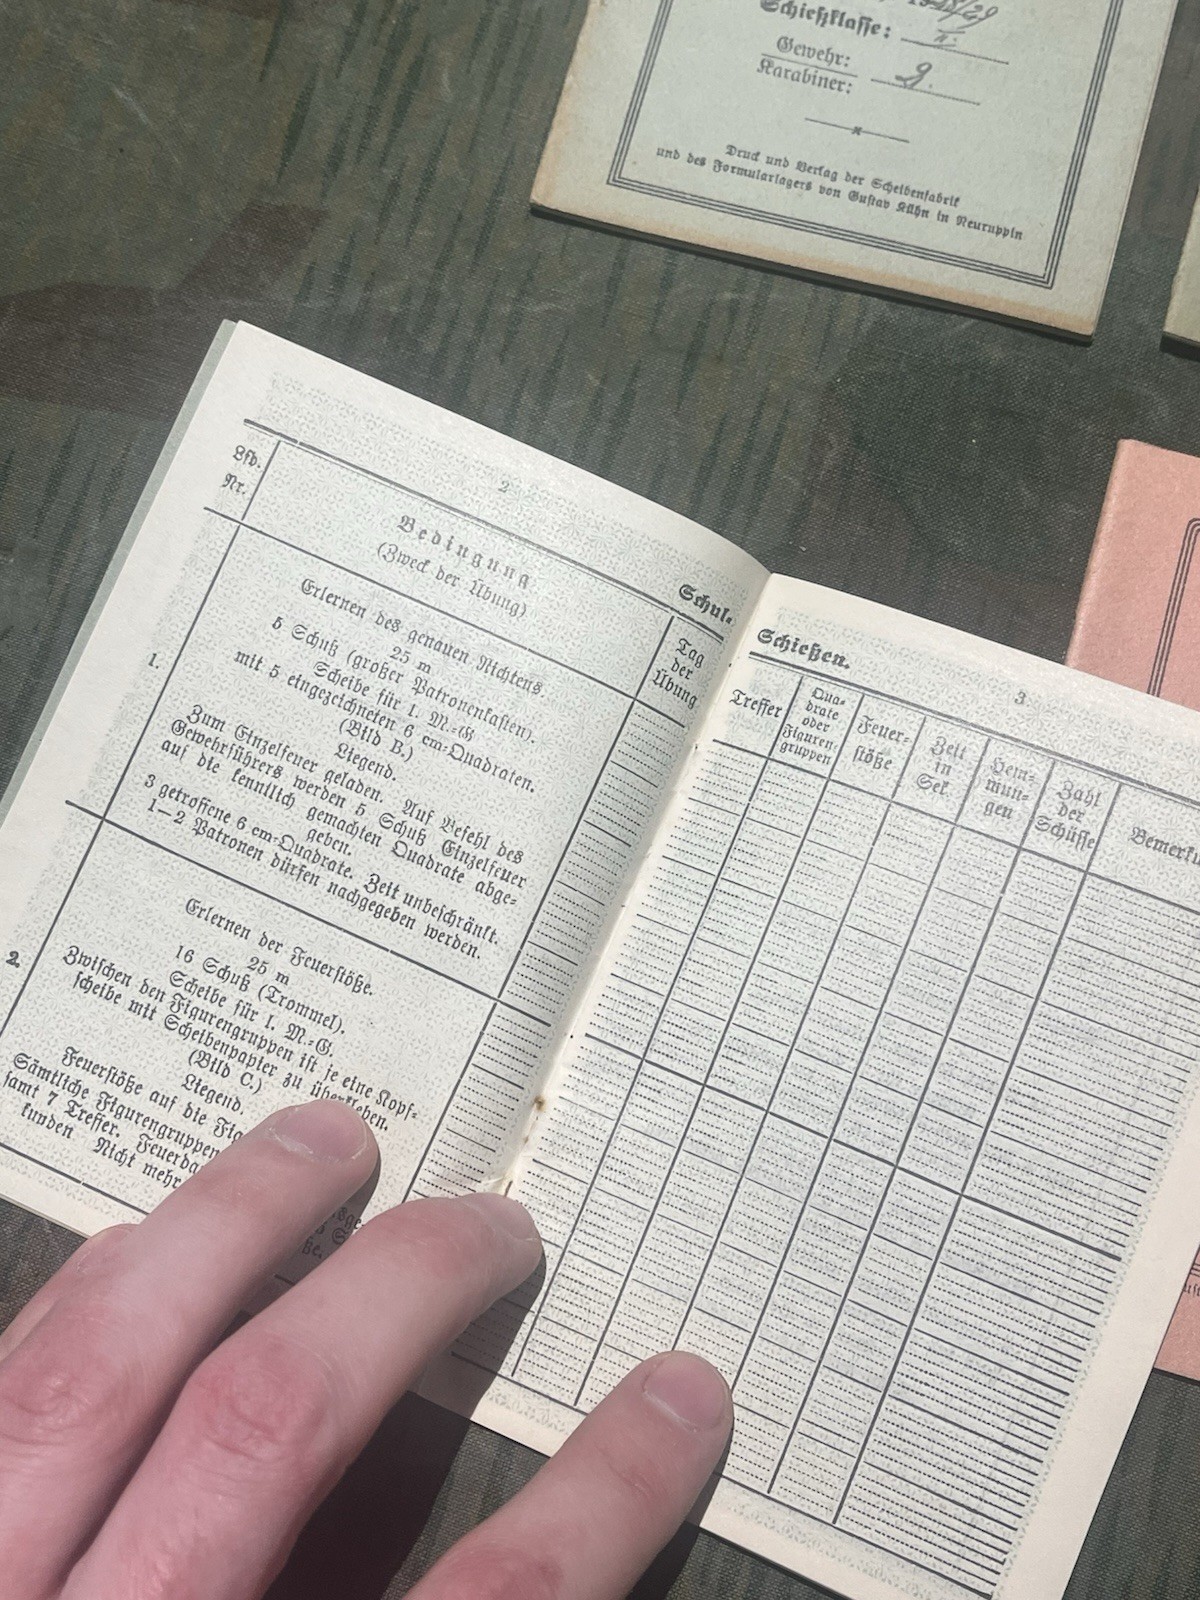 Schießklasse:
Gewehr:
Karabiner:
Druck und Verlag der Scheibenfabrik
und des Formularlagers von Gustav Kühn in Neuruppin
2
Lfd.
Nr.
Bedingung
(Zweck der Übung)
Schul-
Tag
der
Übung
1.
Erlernen des genauen Richtens.
25 m
5 Schuß (großer Patronenkasten).
Scheibe für l. M.=G
mit 5 eingezeichneten 6 cm=Quadraten.
(Bild B.)
Liegend.
Zum Einzelfeuer geladen. Auf Befehl des
Gewehrführers werden 5 Schuß Einzelfeuer
auf die kenntlich gemachten Quadrate abge=
geben.
3 getroffene 6 cm=Quadrate. Zeit unbeschränkt.
1—2 Patronen dürfen nachgegeben werden.
2.
Erlernen der Feuerstöße.
25 m
16 Schuß (Trommel).
Scheibe für l. M.=G.
Zwischen den Figurengruppen ist je eine Kopf=
scheibe mit Scheibenpapier zu überkleben.
(Bild C.)
Liegend.
Feuerstöße auf die
Sämtliche Figurengruppen
samt 7 Treffer.
kunden Nicht mehr
3
Schießen.
Treffer
Qua=
drate
oder
Figuren=
gruppen
Feuer=
stöße
Zeit
in
Sek.
Hem=
mun=
gen
Zahl
der
Schüsse